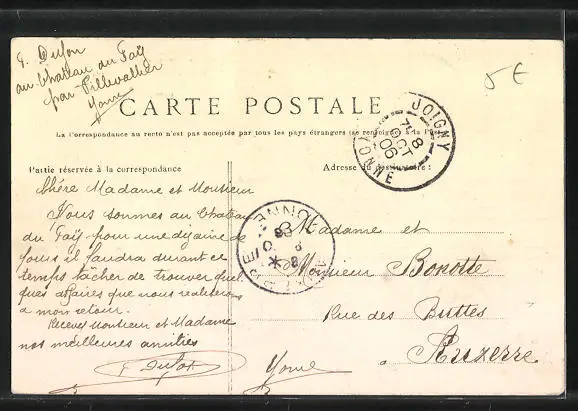 G. Dufon
au Château du Faÿ
par Villevallier
Yonne
5 E
CARTE POSTALE
La Correspondance au recto n'est pas acceptée par tous les pays étrangers (se renseigner à la
Partie réservée à la correspondance
Adresse du destinataire :
JOIGNY
YONNE
8
OCT
06
Chère Madame et Monsieur
Nous sommes au Chateau
du Faÿ pour une dizaine de
jours il faudra durant ce
temps tâcher de trouver quel
ques affaires que nous realiserons
a mon retour.
Recevez Monsieur et Madame
nos meilleures amitiés
G Dufon
YONNE
Madame et
Monsieur Bonotte
Rue des Buttes
a Auxerre
Yonne